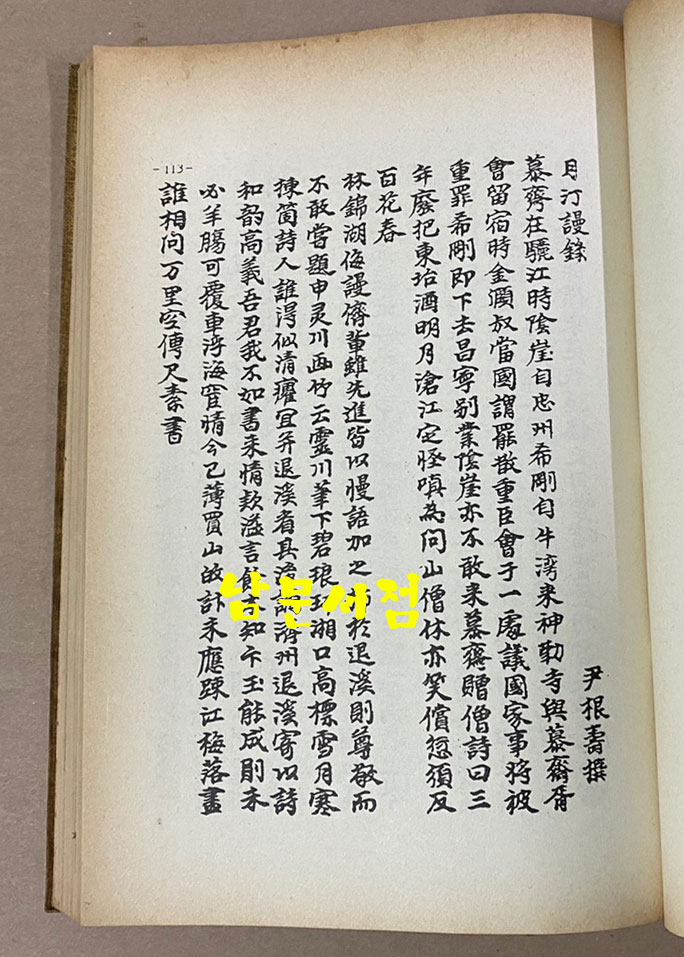 月汀謾錄
尹根壽撰
慕齋在驪江時陰崖自忠州希剛自牛湾来神勒寺與慕齋胥
會留宿時金灝叔當國謂罷散重臣會于一處議國家事将被
重罪希剛即下去昌寧别業陰崖亦不敢来慕齋贈僧詩曰三
年廢把東坮酒明月滄江定怪嗔為问山僧休亦笑償愆須反
百花春
林錦湖侮謾儕輩雖先進皆以慢語加之於退溪則尊敬而
不敢嘗題申灵川画竹云靈川筆下碧琅玕湖口高標雪月寒
揀箇詩人誰淂似清癯冝并退溪看其謫済州退溪寄以詩
和韵高義吾君我不如書来情欵溢言餘亦知卞玉能成刖未
必羊膓可覆車浮海宦情今已薄買山故計未應踈江梅落盡
誰相问万里空傳尺素書
-113-
남문서점